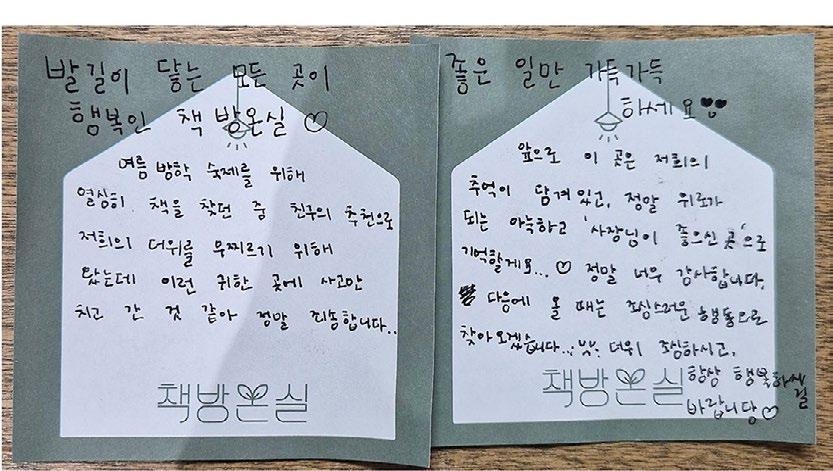 발길이 닿는 모든 곳이
행복인 책방온실♡
여름 방학 숙제를 위해
열심히 책을 찾던 중 친구의 추천으로
저희의 더위를 무찌르기 위해
왔는데 이런 귀한 곳에 사고만
치고 간 것 같아 정말 죄송합니다..
책방온실
좋은 일만 가득가득
하세요♥♥
앞으로 이 곳은 저희의
추억이 담겨있고, 정말 위로가
되는 아늑하고 '사장님이 좋으신 곳'으로
기억할게요...♡ 정말 너무 감사합니다.
다음에 올 때는 조심스러운 행동으로
찾아오겠습니다... 더위 조심하시고,
항상 행복하시길
바랍니당♡
책방온실